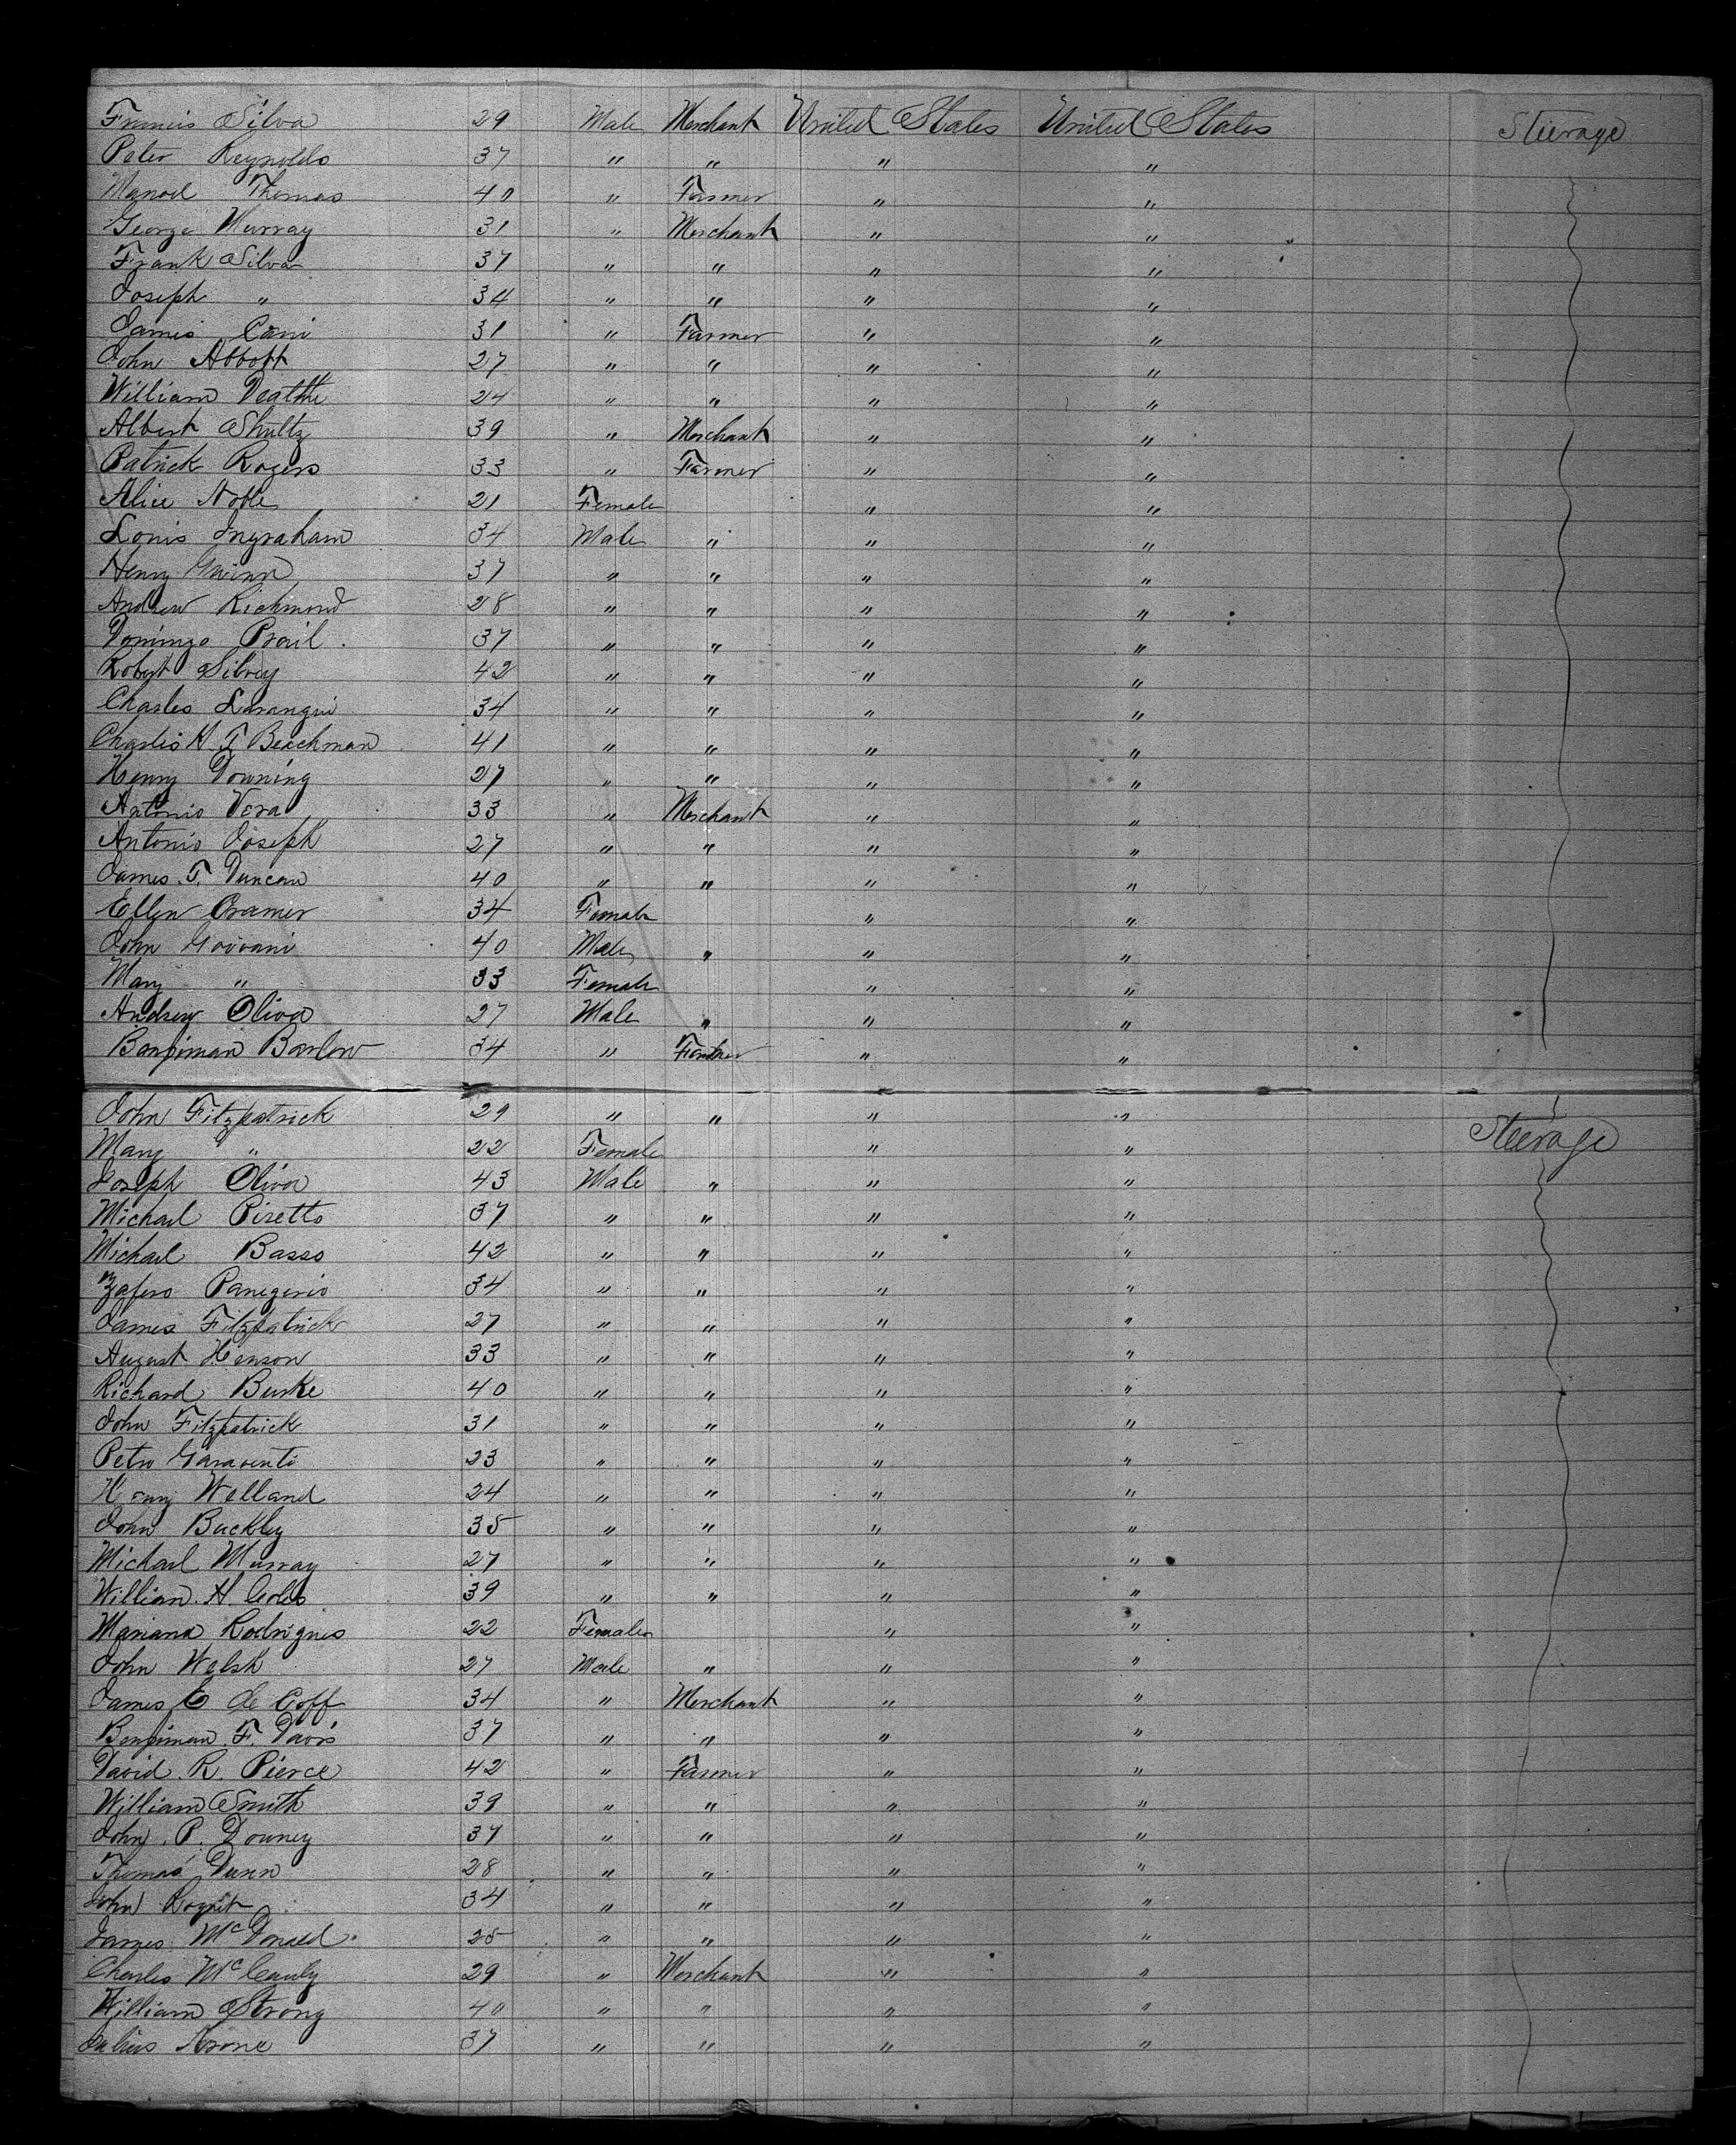 Francis Silva 29 Male Merchant United States United States Steerage
Peter Reynolds 37 " " " "
Manoel Thomas 40 " Farmer " "
George Murray 31 " Merchant " "
Frank Silva 37 " " " "
Joseph " 34 " " " "
James Cani 31 " Farmer " "
John Abbott 27 " " " "
William Deatthe 24 " " " "
Albert Shultz 39 " Merchant " "
Patrick Rogers 33 " Farmer " "
Alice Noble 21 Female " "
Louis Ingraham 34 Male " " "
Henry Gwinn 37 " " " "
Andrew Richmond 28 " " " "
Domingo Prail 37 " " " "
Robert Silvey 42 " " " "
Charles Larangui 34 " " " "
Charles H. T. Beachman 41 " " " "
Henry Downing 27 " " " "
Antonio Vera 33 " Merchant " "
Antonio Joseph 27 " " " "
James T. Duncan 40 " " " "
Ellen Cramer 34 Female " "
John Giovani 40 Male " " "
Mary " 33 Female " "
Andrew Oliva 27 Male " " "
Benjiman Barlow 34 " Farmer " "
John Fitzpatrick 29 " " " "
Mary " 22 Female " " Steerage
Joseph Oliva 43 Male " " "
Michael Pisetto 37 " " " "
Michael Basso 42 " " " "
Zafero Panegerio 34 " " " "
James Fitzpatrick 27 " " " "
August Henson 33 " " " "
Richard Burke 40 " " " "
John Fitzpatrick 31 " " " "
Petro Garaventi 23 " " " "
Henry Welland 24 " " " "
John Buckley 35 " " " "
Michael Murray 27 " " " "
William H. Coles 39 " " " "
Mariana Rodrignes 22 Female " "
John Welsh 27 Male " " "
James C de Goff 34 " Merchant " "
Benjiman F. Davis 37 " " " "
David R. Pierce 42 " Farmer " "
William Smith 39 " " " "
John P. Downey 37 " " " "
Thomas Dunn 28 " " " "
John 34 " " " "
James McDonald 25 " " " "
Charles McCauly 29 " Merchant " "
William Strong 40 " " " "
Julius Arone 37 " " " "